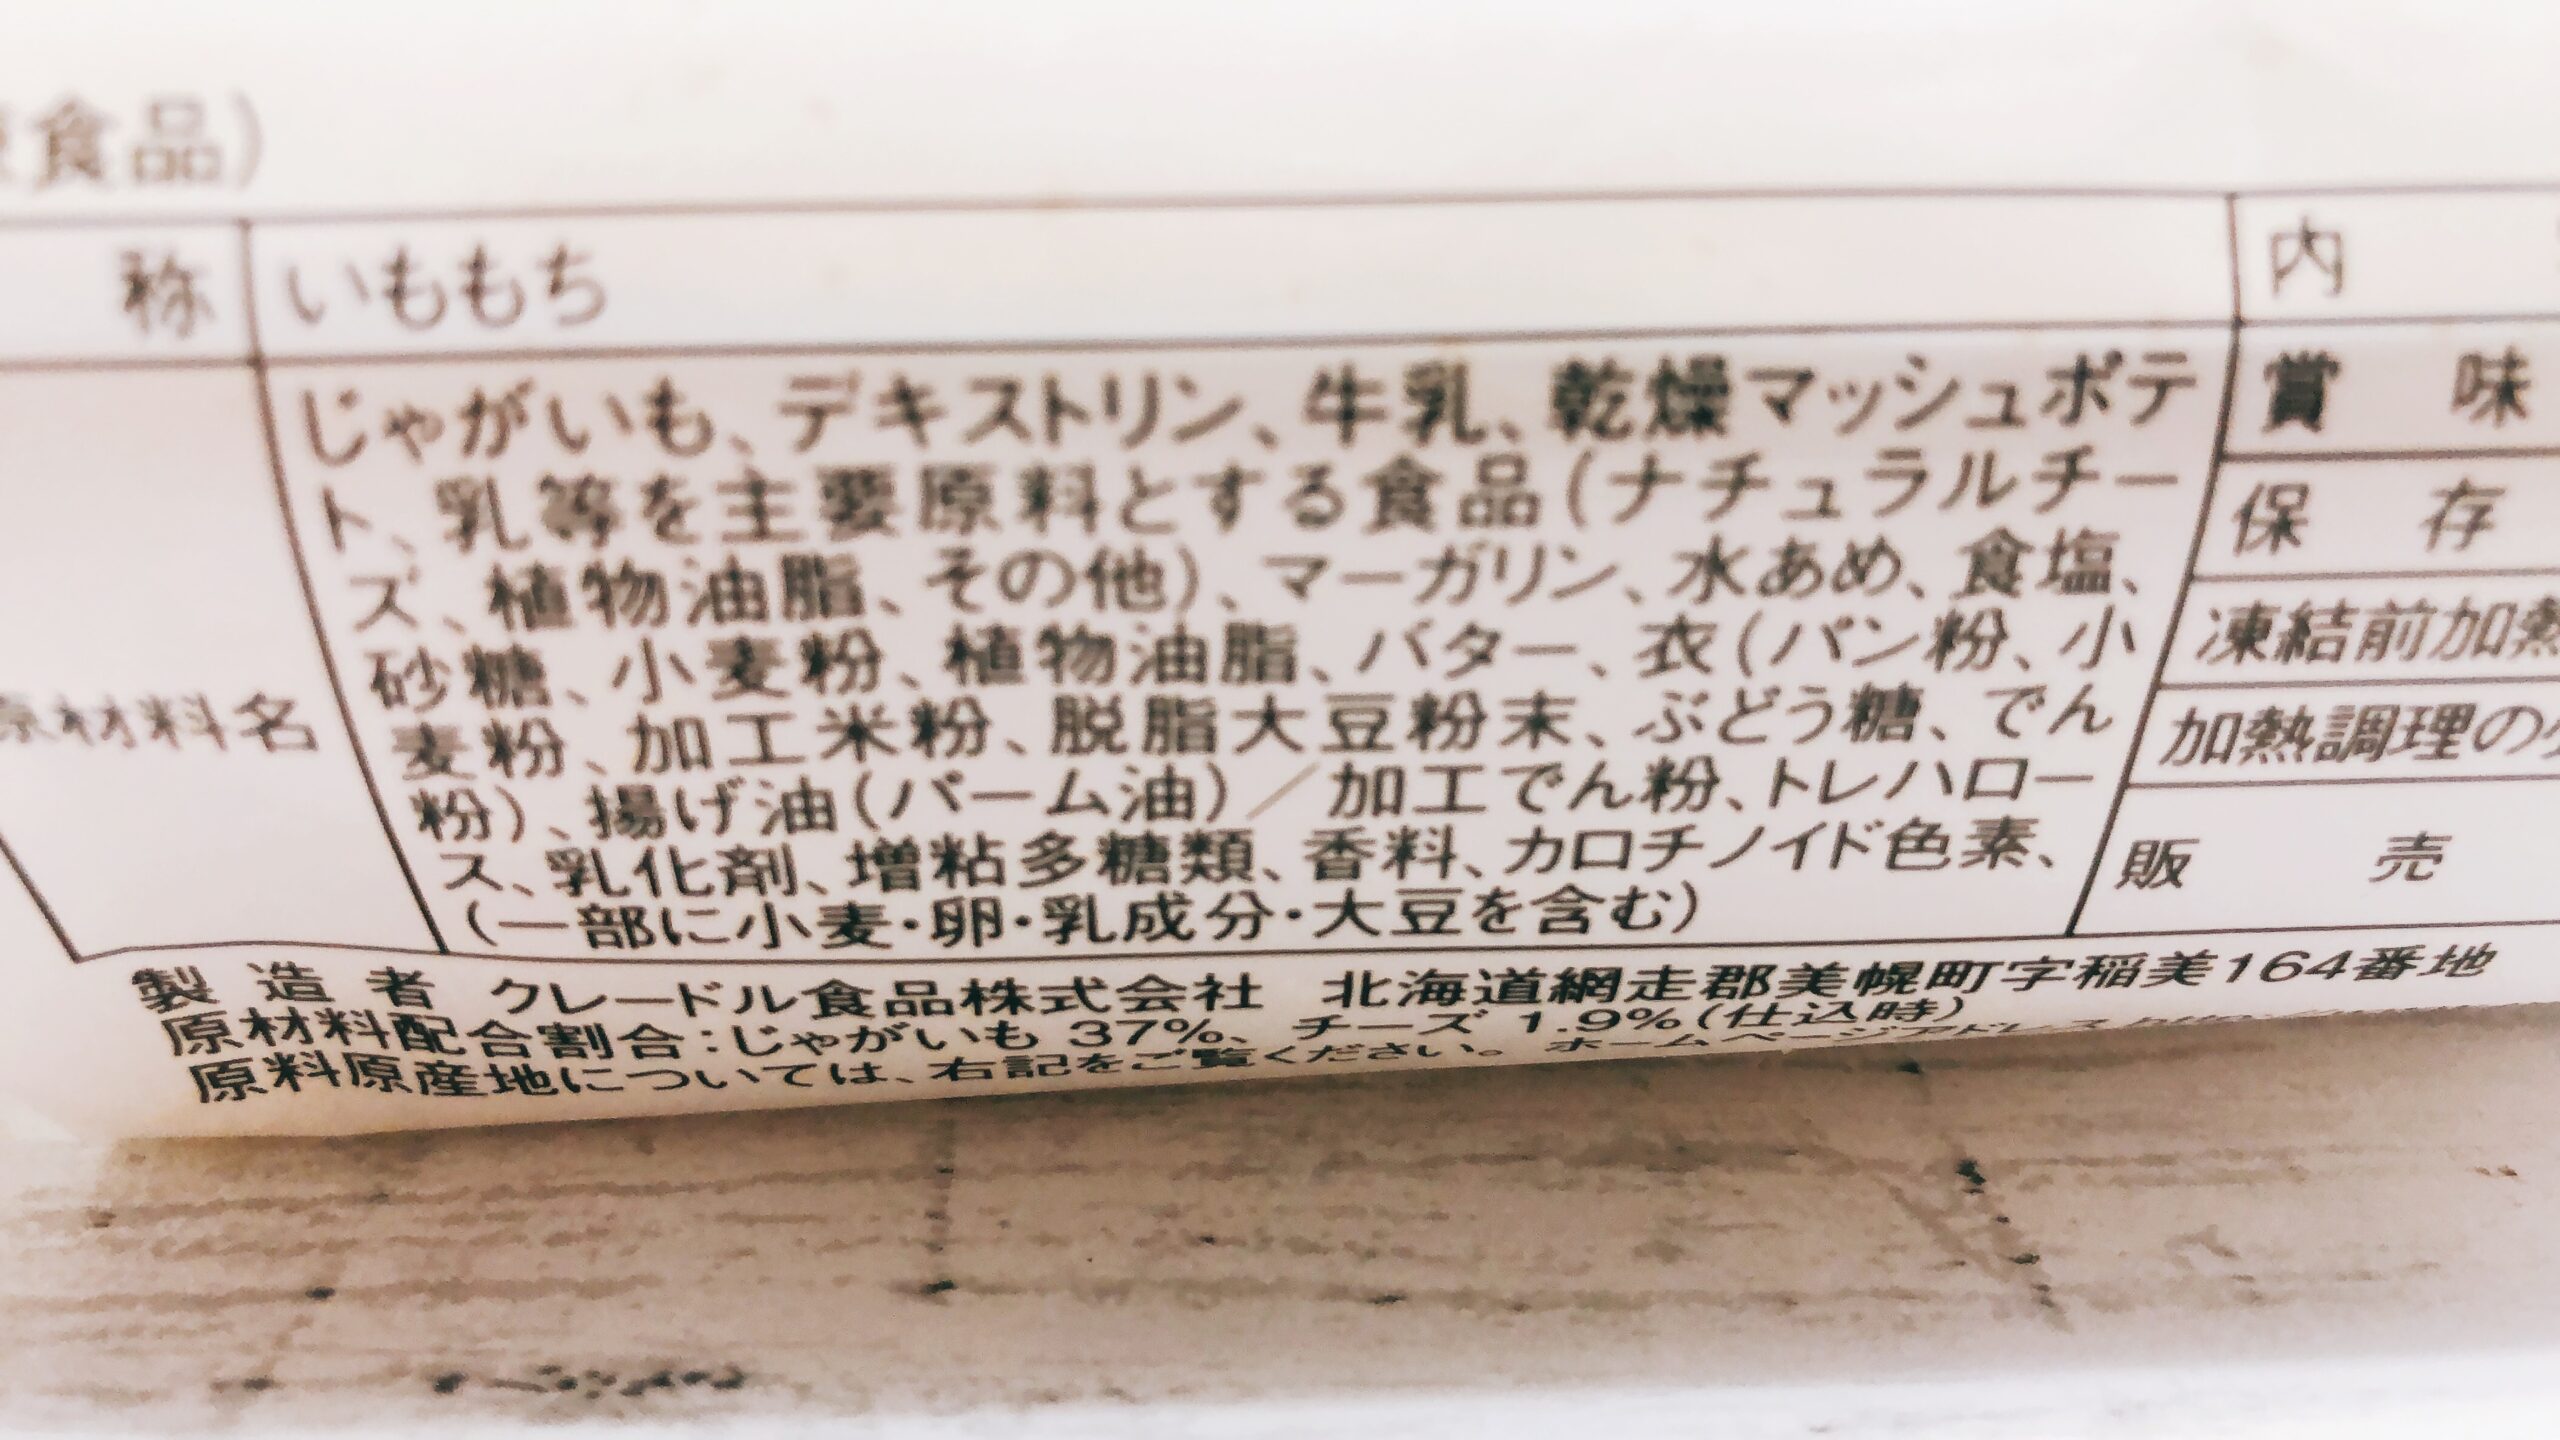 食品）
称 いももち 内
じゃがいも、デキストリン、牛乳、乾燥マッシュポテ
ト、乳等を主要原料とする食品（ナチュラルチー
ズ、植物油脂、その他）、マーガリン、水あめ、食塩、
砂糖、小麦粉、植物油脂、バター、衣（パン粉、小
麦粉、加工米粉、脱脂大豆粉末、ぶどう糖、でん
粉）、揚げ油（パーム油）／加工でん粉、トレハロー
ス、乳化剤、増粘多糖類、香料、カロチノイド色素、
（一部に小麦・卵・乳成分・大豆を含む）
原材料名
賞味
保存
凍結前加熱
加熱調理の
販売
製造者 クレードル食品株式会社 北海道網走郡美幌町字稲美164番地
原材料配合割合：じゃがいも 37%、チーズ 1.9%（仕込時）
原料原産地については、右記をご覧ください。 ホームページアドレス